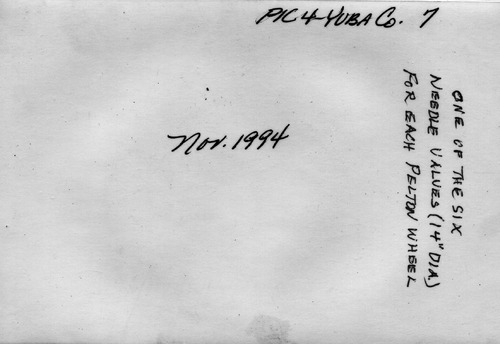 PIC 4-YUBA CO. 7
Nov. 1994
ONE OF THE SIX
NEEDLE VALVES (14" DIA.)
FOR EACH PELTON WHEEL